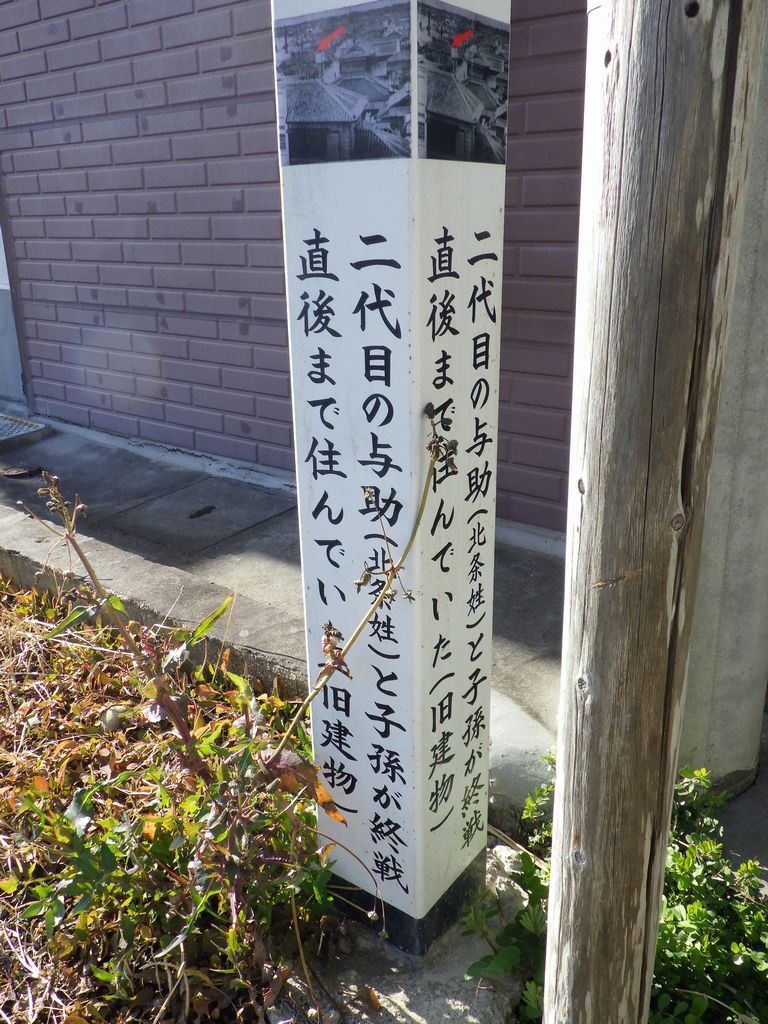 二代目の与助（北条姓）と子孫が終戦
直後まで住んでい（旧建物）
二代目の与助（北条姓）と子孫が終戦
直後まで住んでいた（旧建物）